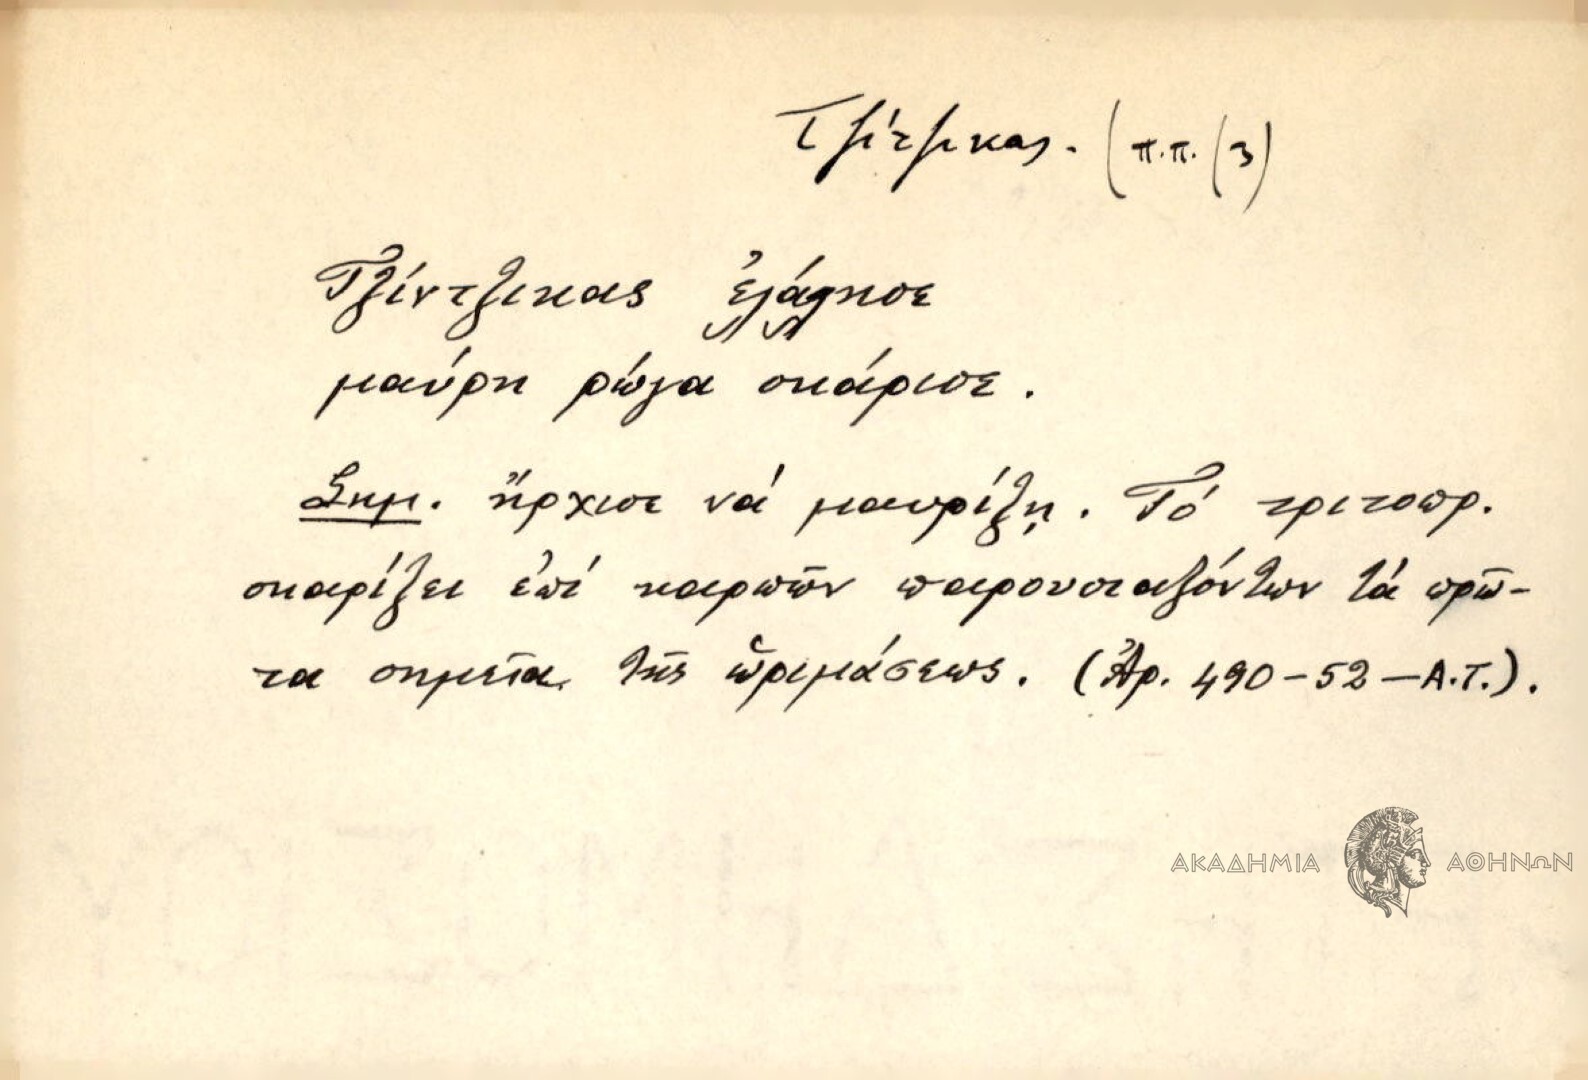 Τζίτζικας. (π.π. (3)
Τζίντζικας ἐλάλησε
μαύρη ρώγα σκάρισε.
Σημ. ἤρχισε νά μαυρίζῃ. Τό τριτοπρ.
σκαρίζει ἐπί καρπῶν παρουσιαζόντων τά πρῶ-
τα σημεῖα τῆς ὡριμάσεως. (Ἀρ. 490-52-Α.Τ.).
ΑΚΑΔΗΜΙΑ ΑΘΗΝΩΝ